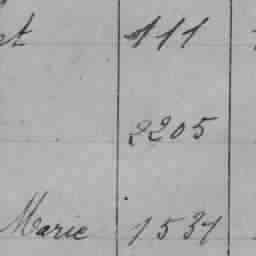 et 111
2205
Marie 1537